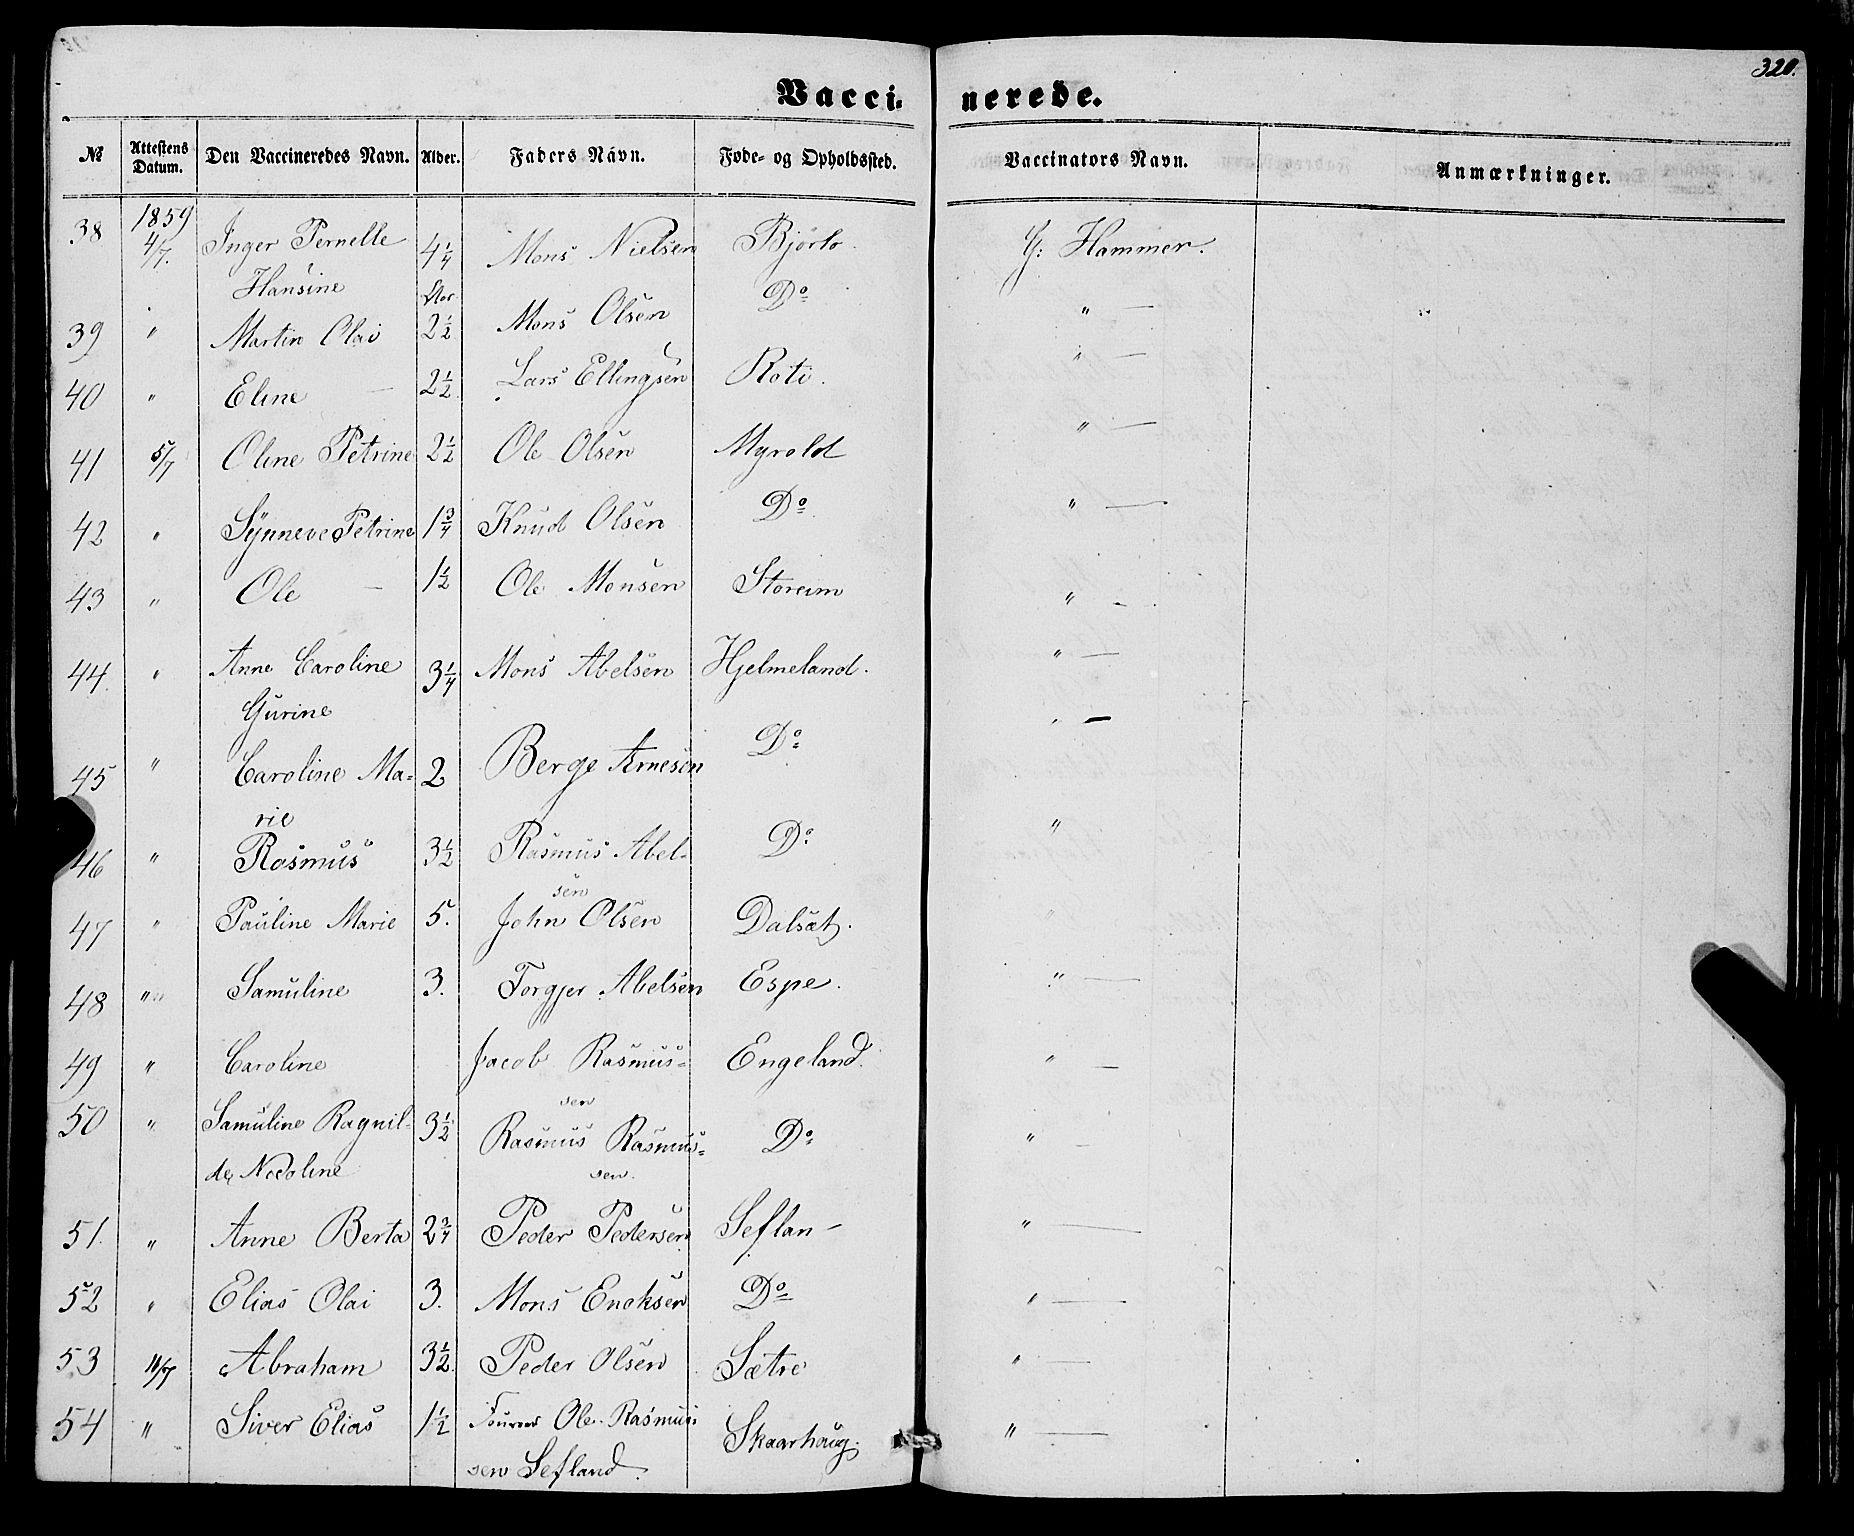 320.
Vaccinerede.
№ Attestens Datum. Den Vaccineredes Navn. Alder. Faders Navn. Føde- og Opholdssted. Vaccinators Navn. Anmærkninger.
1859
38 4/7. Inger Pernelle 4 1/4 Mons Nielsen Bjørlo. G: Hammer.
Hansine
39 " Martin Olai 2 1/2 Mons Olsen Do " —
40 " Eline — 2 1/2 Lars Ellingsen Roti. " —
41 5/7 Oline Petrine 2 1/2 Ole Olsen Myrold " —
42 " Synneve Petrine 1 3/4 Knud Olsen Do " —
43 " Ole — 1 1/2 Ole Monsen Storeim " -
44. " Anne Caroline 3 1/4 Mons Abelsen Hjelmeland. " —
Gurine
45 " Caroline Ma- 2 Berge Arnesen Do " —
rie
46 " Rasmus 3 1/2 Rasmus Abel- Do "
sen
47 " Pauline Marie 5. John Olsen Dalsæt. "
48 " Samuline 3. Torgjer Abelsen Espe. " —
49 " Caroline Jacob Rasmus- Engeland. " —
sen
50 " Samuline Ragnil- 3 1/2 Rasmus Rasmus- Do " —
da Nicoline sen.
51. " Anne Berta 2 3/4 Peder Pedersen Seflan- " —
52 " Elias Olai 3. Mons Enoksen Do " —
53 11/7 Abraham 3 1/2 Peder Olsen Sætre " —
54 " Siver Elias 1 1/2 Ole Rasmus- Skaarhaug. " —
sen Sefland.